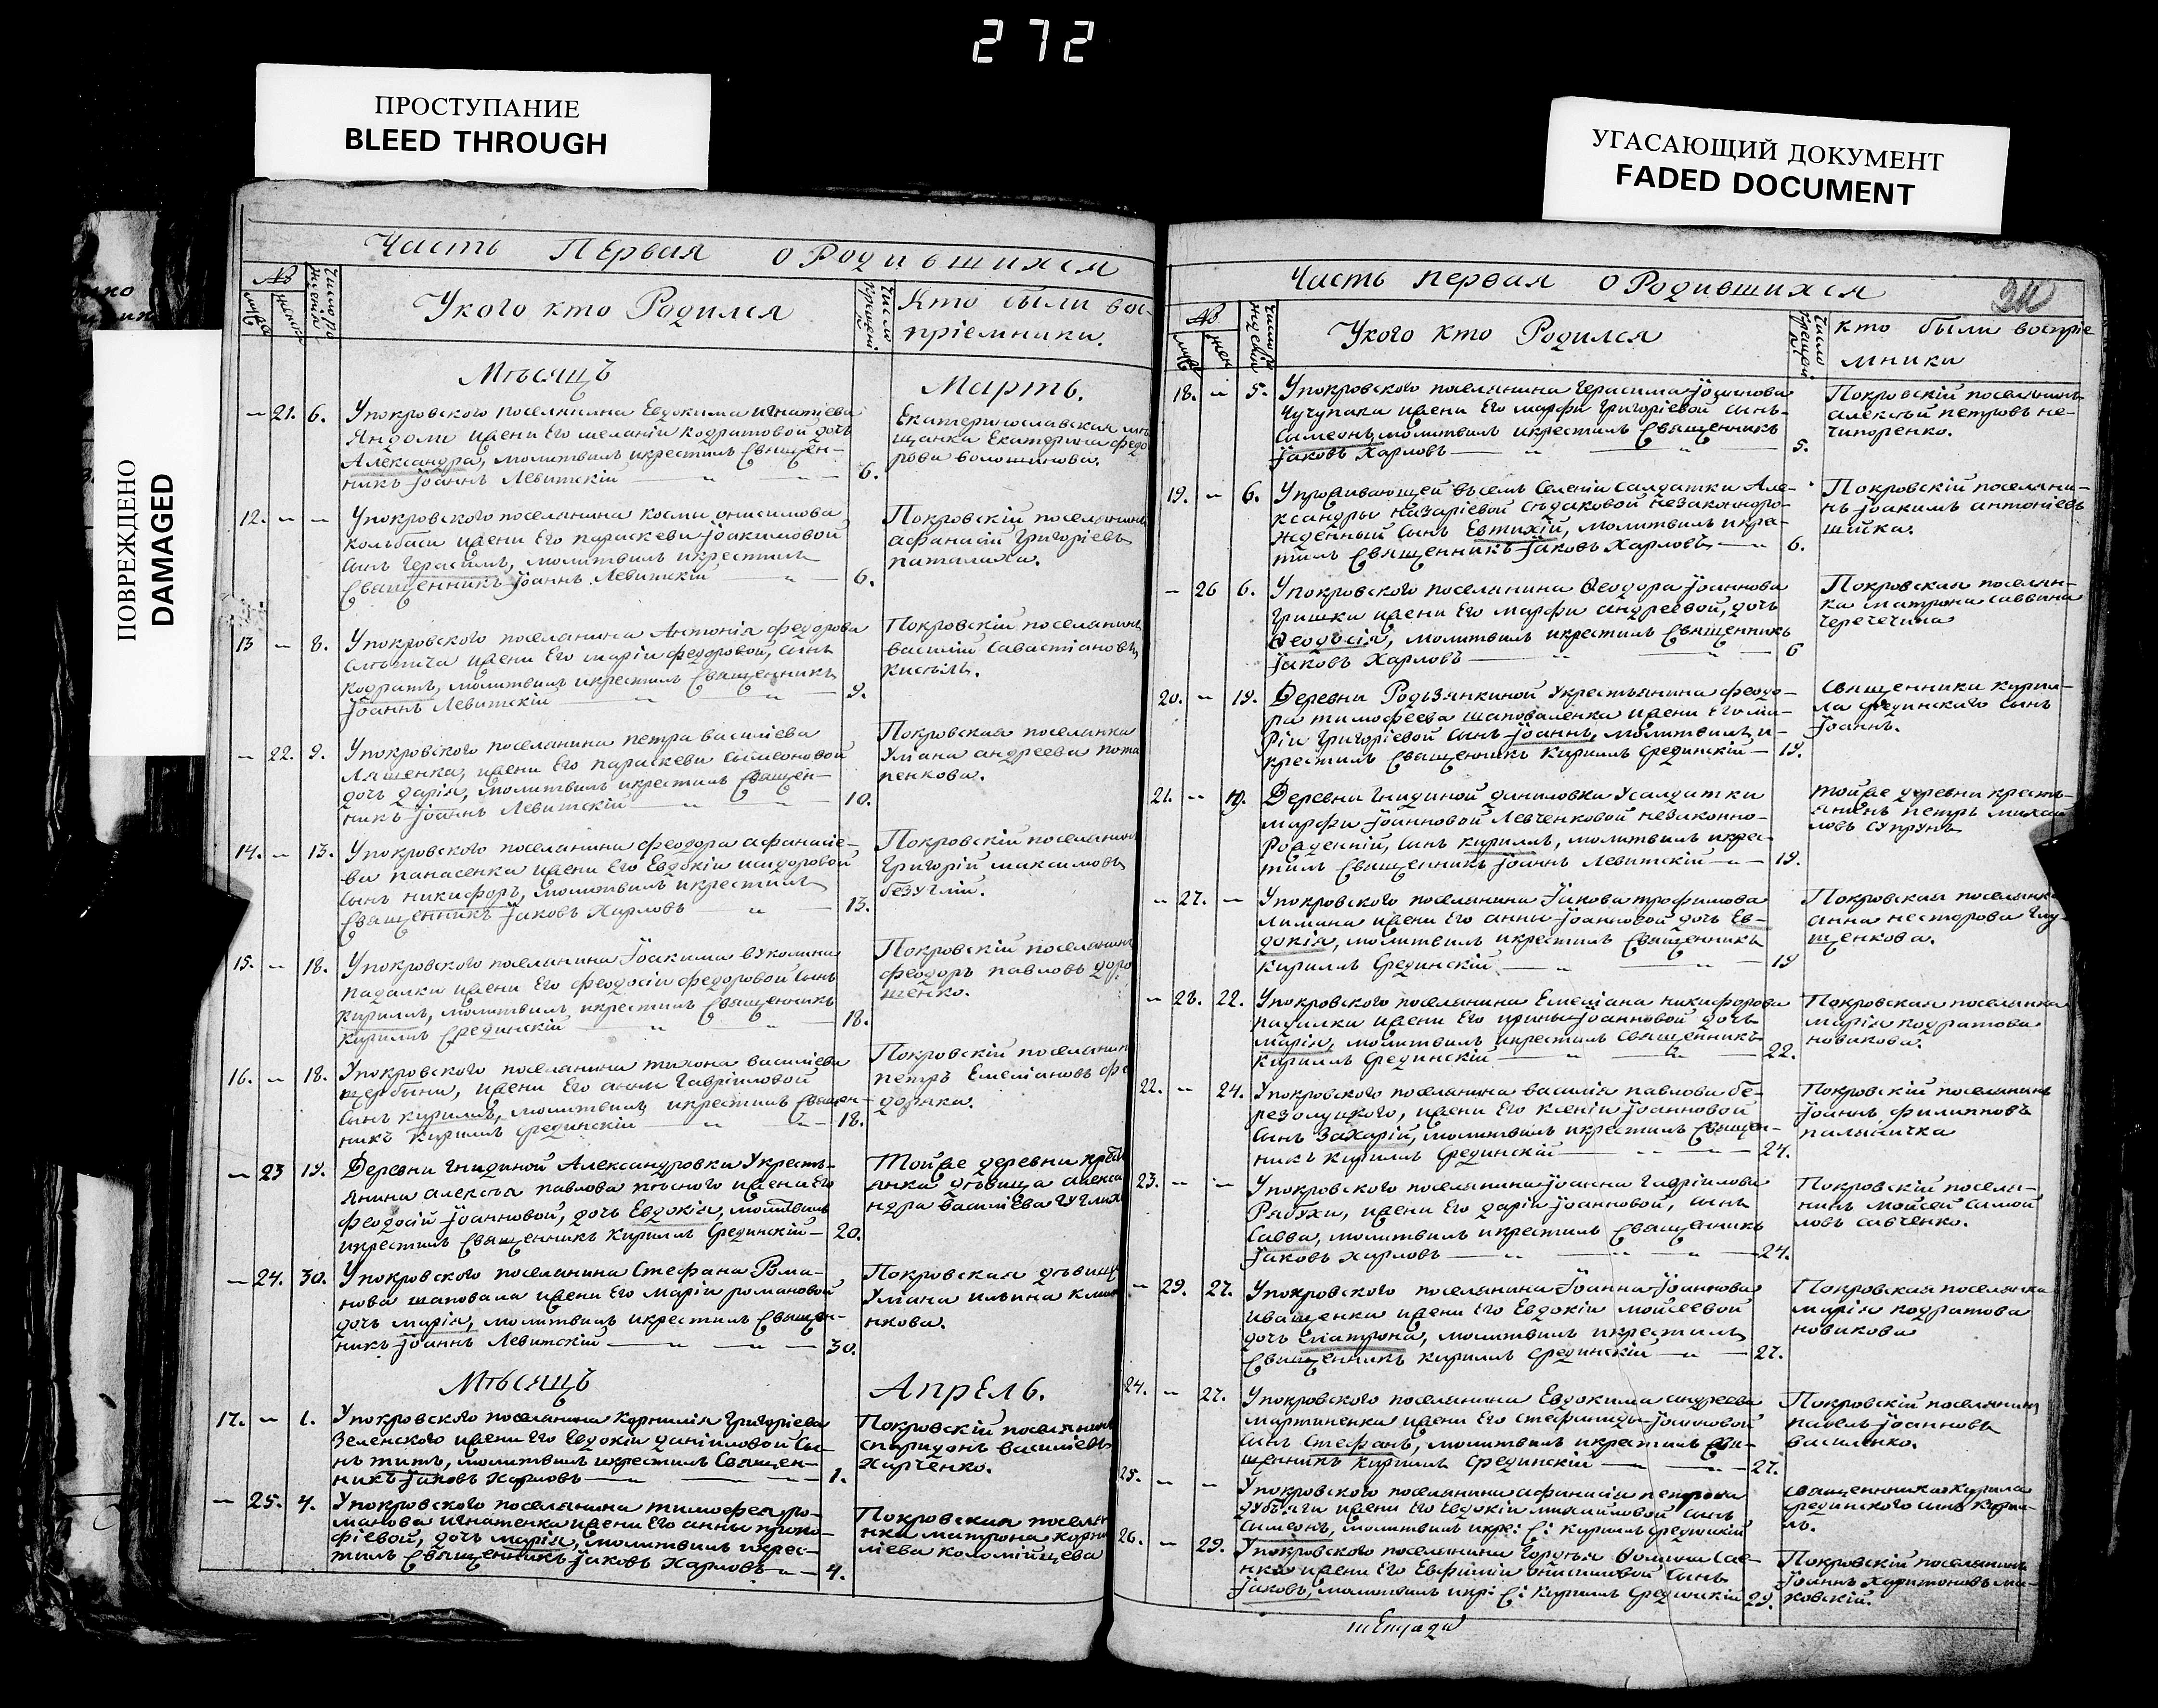 272
ПРОСТУПАНИЕ
BLEED THROUGH
УГАСАЮЩИЙ ДОКУМЕНТ
FADED DOCUMENT
ПОВРЕЖДЕНО
DAMAGED
Часть Первая о Родившихся
№
Укого кто Родился
Кто были вос-
пріемники.
Мѣсяцъ
Мартъ.
21. 6. Упокровского поселянина Евдокима игнатіева
ижени Его меланіи кодратовой дочь
Александра, молитвилъ икрестилъ Священ-
никъ Іоаннъ Левитскій 6.
Екатеринославская мѣ
щанка Екатерина федо
рова волошинова.
12. Упокровского поселянина косми онисимова
кольбаси ижени Его параскеви Іоакимовой
сынъ Герасимъ, молитвилъ икрестилъ
Священникъ Іоаннъ Левитскій 6.
Покровскій поселянинъ
афанасій Григоріевъ
паталаха.
13 8. Упокровского поселянина Антонія федорова
ижени Его маріи федоровой, сынъ
кодратъ, молитвилъ икрестилъ Священникъ
Іоаннъ Левитскій 9.
Покровскій поселянинъ
василій Савастіановъ
кисѣль.
22. 9. Упокровского поселянина петра василіева
Ляшенка, ижени Его параскеви Сѵмеоновой
дочь дарія, молитвилъ икрестилъ Священ-
никъ Іоаннъ Левитскій 10.
Покровская поселянка
Уліана андреева пота
пенкова.
14. 13. Упокровского поселянина феодора афанасіе-
ва панасенка ижени Его Евдокіи исидоровой
сынъ никифоръ, молитвилъ икрестилъ
Священникъ Іаковъ Харловъ 13.
Покровскій поселянинъ
Григорій максимовъ
безуглій.
15. 18. Упокровского поселянина Іоакима вуколина
падалки ижени Его феодосіи федоровой сынъ
кирилъ, молитвилъ икрестилъ Священникъ
кирилъ Срединскій 18.
Покровскій поселянинъ
феодоръ павловъ доро
шенко.
16. 18. Упокровского поселянина тихона василіева
щербини, ижени Его анни Гавріиловой
сынъ кирилъ, молитвилъ икрестилъ Священ-
никъ Кирилъ Срединскій 18.
Покровскій поселянин
петръ Емеліановъ фе
доряка.
23 19. Деревни Гнидиной Александровки Укресть-
янина алексѣя павлова ижени Его
феодосій Іоанновой, дочь Евдокія, молитвилъ
икрестилъ Священникъ Кирилъ Срединскій 20.
Тойже деревни крестья
янка дѣвица алекса
ндра василіева
24. 30. Упокровского поселянина Стефана Рома-
нова шаповала ижени Его Маріи романовой
дочь марія, молитвилъ икрестилъ Священ-
никъ Іоаннъ Левитскій 30.
Покровская дѣвица
Уліана ильина
нкова.
Мѣсяцъ
Апрель.
17. 1. Упокровского поселянина Корнилія Григоріева
Зеленского ижени Его Евдокіи даніиловой Сы-
нъ титъ, молитвилъ икрестилъ Священ-
никъ Іаковъ Харловъ 1.
Покровскій поселянинъ
спиридонъ василіевъ
Харченко.
25. 4. Упокровского поселянина тимофея ро-
манова игнатенка ижени Его анны
фіевой, дочь марія, молитвилъ икрес-
тилъ Священникъ Іаковъ Харловъ 4.
Покровская поселя
нка матрона корни
ліева коломійцева
Часть первая о Родившихся
№
Укого кто Родился
кто были воспріе
мники
18. 5. Упокровского поселянина Герасима Іоаннова
Чучупаки ижени Его марфи Григоріевой сынъ
Сѵмеонъ, молитвилъ икрестилъ Священникъ
Іаковъ Харловъ 5.
Покровскій поселянинъ
алексѣй петровъ не-
чипоренко.
19. 6. Упроживающей въсемъ Селеніи Салдатки Але-
ксандры назаріевой незаконноро-
жденный сынъ Евтихій, молитвилъ икре-
тилъ Священникъ Іаковъ Харловъ 6.
Покровскій поселяни-
нъ Іоакимъ антоніевъ
шийка.
26 6. Упокровского поселянина Ѳеодора Іоаннова
Гришки ижени Его марфи андреевой, дочь
Ѳеодосія, молитвилъ икрестилъ Священникъ
Іаковъ Харловъ 6
Покровская поселян-
ка матрона саввина
Черечечина
20. 19. Деревни Родзянкиной Укрестьянина феодо-
ра тимофеева шаповаленка ижени Его ма-
ріи Григоріевой сынъ Іоаннъ, молитвилъ и-
крестилъ Священникъ Кирилъ Срединскій 19.
Священника Кири-
ла Срединского сынъ
Іоаннъ.
21. 19. Деревни Гнидиной даниловки Усалдатки
марфи Іоанновой Левченковой незаконно-
Рожденній, сынъ кирилъ, молитвилъ икрес-
тилъ Священникъ Іоаннъ Левитскій 19.
тойже деревни кресть-
янинъ петръ михай
ловъ супрунъ
27. Упокровского поселянина Іакова трофимова
Лимана ижени Его анни Іоанновой дочь Ев-
докія, молитвилъ икрестилъ Священникъ
Кирилъ Срединскій 19
Покровская поселянка
анна несторова Глу-
щенкова.
28. 22. Упокровского поселянина Емеліана никифорова
падалки ижени Его ирины Іоанновой дочь
марія, молитвилъ икрестилъ Священникъ
Кирилъ Срединскій 22.
Покровская поселянка
марія кодратова
новикова.
22. 24. Упокровского поселянина василія павлова бе-
резолуцкого, ижени Его ксеніи Іоанновой
сынъ Захарій, молитвилъ икрестилъ Священ-
никъ Кирилъ Срединскій 24.
Покровскій поселянинъ
Іоаннъ филипповъ
паляничка
23. Упокровского поселянина Іоанна Гавріилова
Рябухи, ижени Его даріи Іоанновой, сынъ
Савва, молитвилъ икрестилъ Священникъ
Іаковъ Харловъ 24.
Покровскій поселя-
нинъ Мойсей Самой
ловъ савченко.
29. 27. Упокровского поселянина Іоанна Іоаннова
иващенка ижени Его Евдокіи мойсеевой
дочь матрона, молитвилъ икрестилъ
Священникъ кирилъ Срединскій 27.
Покровская поселянка
марія кодратова
новикова
24. 27. Упокровского поселянина Евдокима андреева
мартиненка ижени Его стефаниды Іоанновой
сынъ Стефанъ, молитвилъ икрестилъ Свя-
щенникъ Кирилъ Срединскій 27.
Покровскій поселянинъ
павелъ Іоанновъ
василенко.
25. Упокровского поселянина афанасія петрова
дубъяги ижени Его Евдокіи михайловой сынъ
Сѵмеонъ, молитвилъ икре: С: Кирилъ Срединскій
священника кирила
срединского сынъ кири-
лъ.
26. 29. Упокровского поселянина Гордѣя Ѳомина сав-
нка ижени Его Евфиміи онисимовой сынъ
Іаковъ, молитвилъ икрі С: Кирилъ Срединскій 29.
Покровскій поселянинъ
Іоаннъ Харитоновъ ма-
ковскій.